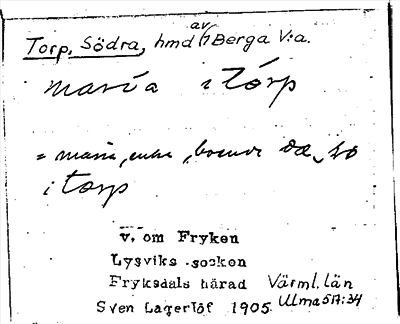 Torp, Södra, hmd av Berga V:a.
maria i tórp
= maria, enka, boende
i torp
v. om Fryken
Lysviks socken
Fryksdals härad Värml. län
Sven Lagerlöf 1905. Ulma 57:34